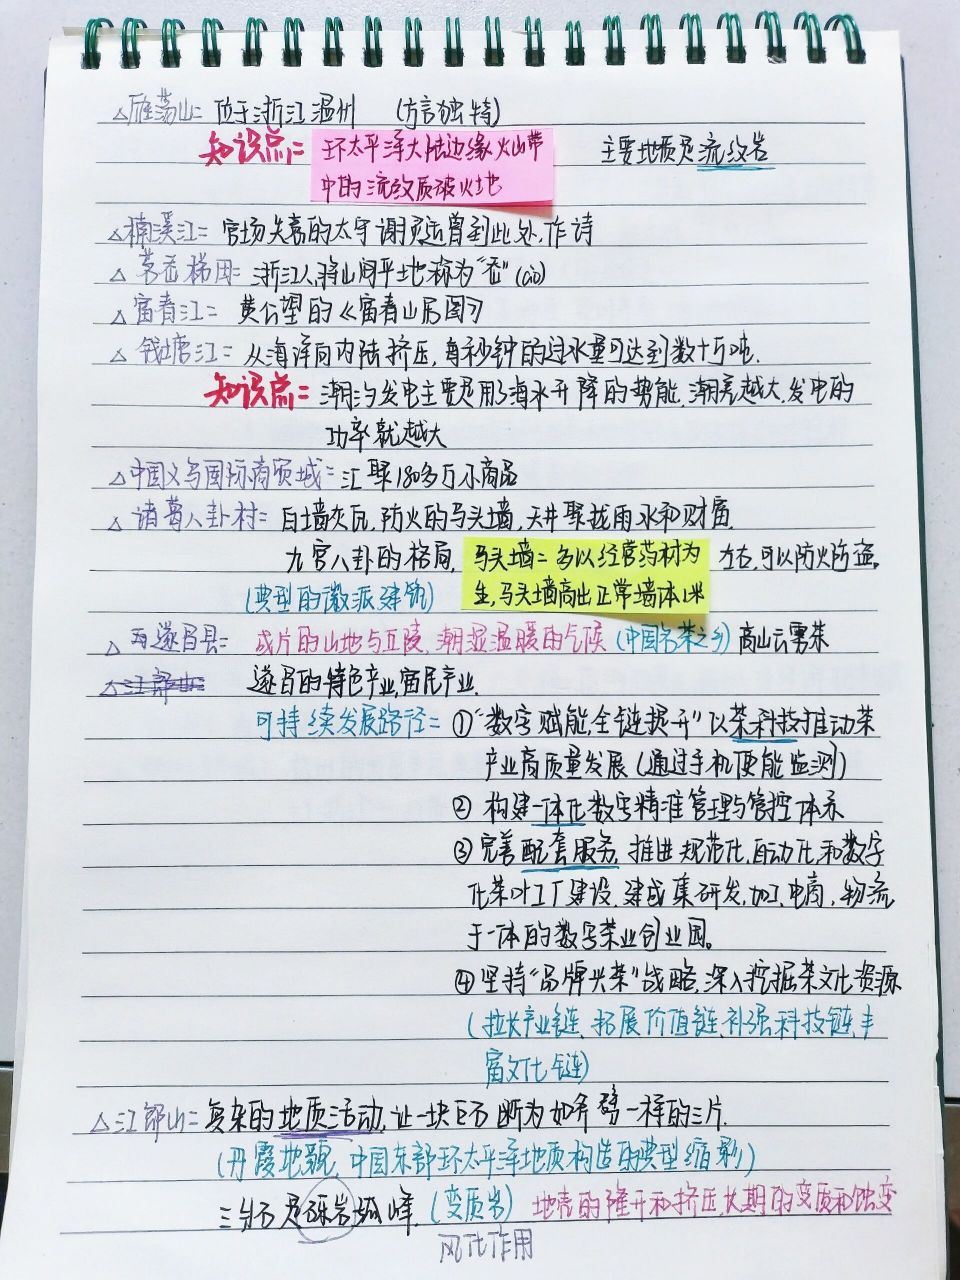 △雁荡山= 位于浙江温州 (方言独特)
知识点= 环太平洋大陆边缘火山带 主要地质是流纹岩
中的流纹质破火地
△楠溪江= 官场失意的太守谢灵运曾到此处,作诗
△茗岙梯田= 浙江人将山间平地称为"岙"(ào)
△富春江= 黄公望的《富春山居图》
△钱塘江= 从海洋向内陆挤压,每秒钟的过水量可达到数十万吨.
知识点= 潮汐发电主要是用了海水升降的势能,潮差越大,发电的
功率就越大
△中国义乌国际商贸城= 汇聚180多万小商品
△诸葛八卦村= 白墙灰瓦,防火的马头墙,天井聚拢雨水和财富,
九宫八卦的格局, 马头墙= 多以经营药材为 左右,可以防火防盗。
(典型的徽派建筑) 生,马头墙高出正常墙体1米
△ 遂昌县= 成片的山地与丘陵,潮湿温暖的气候 (中国名茶之乡) 高山云雾茶
△江郎山= 遂昌的特色产业,富民产业.
可持续发展路径= ①"数字赋能,全链提升"以茶科技推动茶
产业高质量发展(通过手机便能监测)
② 构建一体化数字精准管理与管控体系
③完善配套服务,推进规范化,自动化,和数字
化茶叶工厂建设,建成集研发,加工,电商,物流
于一体的数字茶业创业园。
④坚持"品牌兴茶"战略,深入挖掘茶文化资源
(拉长产业链,拓展价值链,补强科技链,丰
富文化链)
△江郎山= 复杂的地质活动,让一块巨石断为如斧劈一样的三片.
(丹霞地貌,中国东部环太平洋地质构造的典型缩影)
三爿石是砾岩孤峰,(变质岩) 地壳的隆升和挤压,长期的变质和蚀变
风化作用